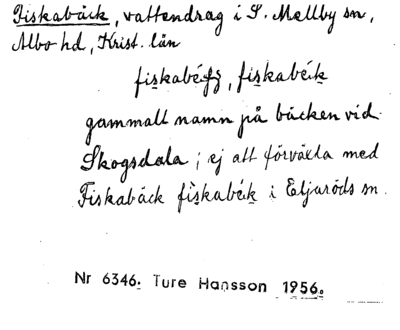 Fiskabäck, vattendrag i S. Mellby sn,
Albo hd, Krist. län
fiskabék, fiskabék
gammalt namn på bäcken vid
Skogsdala; ej att förväxla med
Fiskabäck fiskabék i Eljaröds sn.
Nr 6346. Ture Hansson 1956.